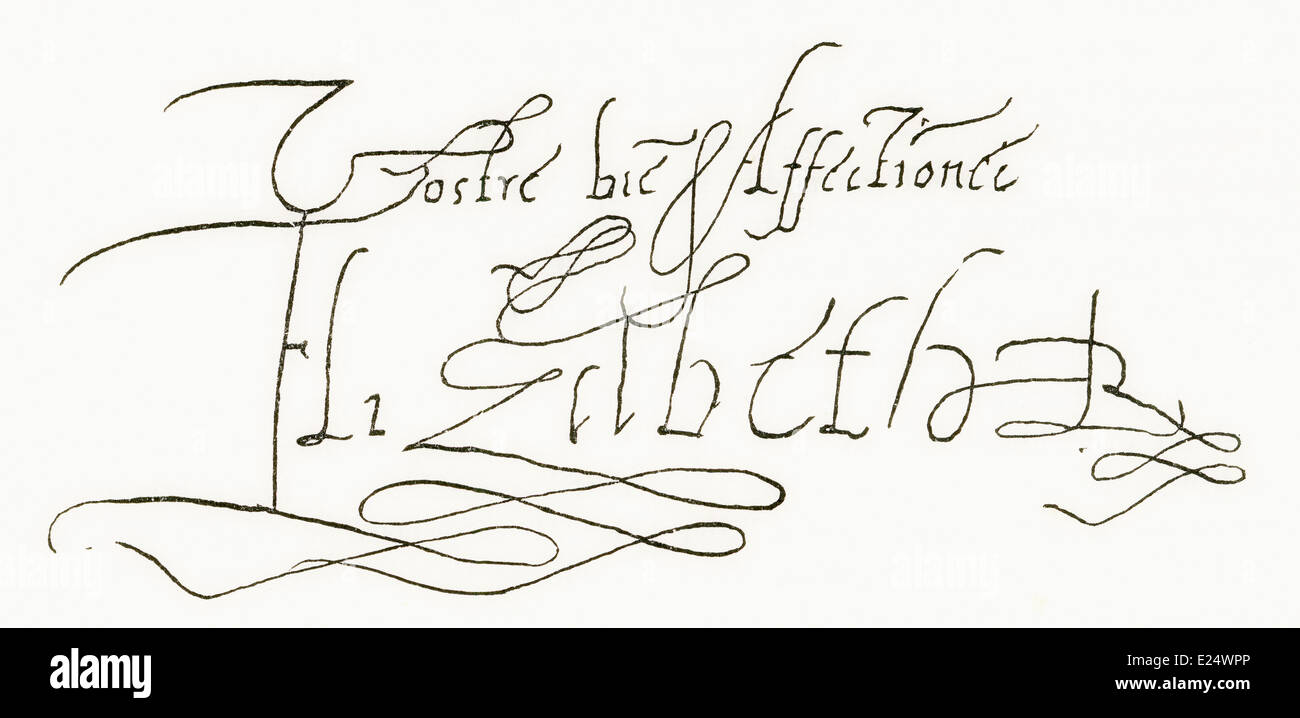 Vostre biē Affectionee
Elizabeth R
alamy
Image ID: E24WPP
www.alamy.com